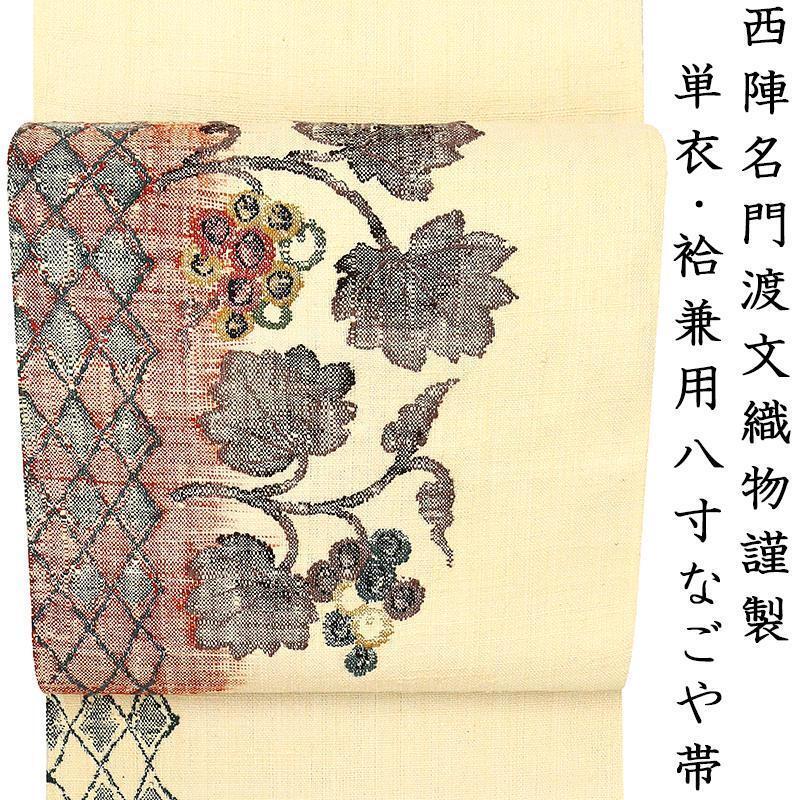 西陣名門渡文織物謹製
単衣・袷兼用八寸なごや帯